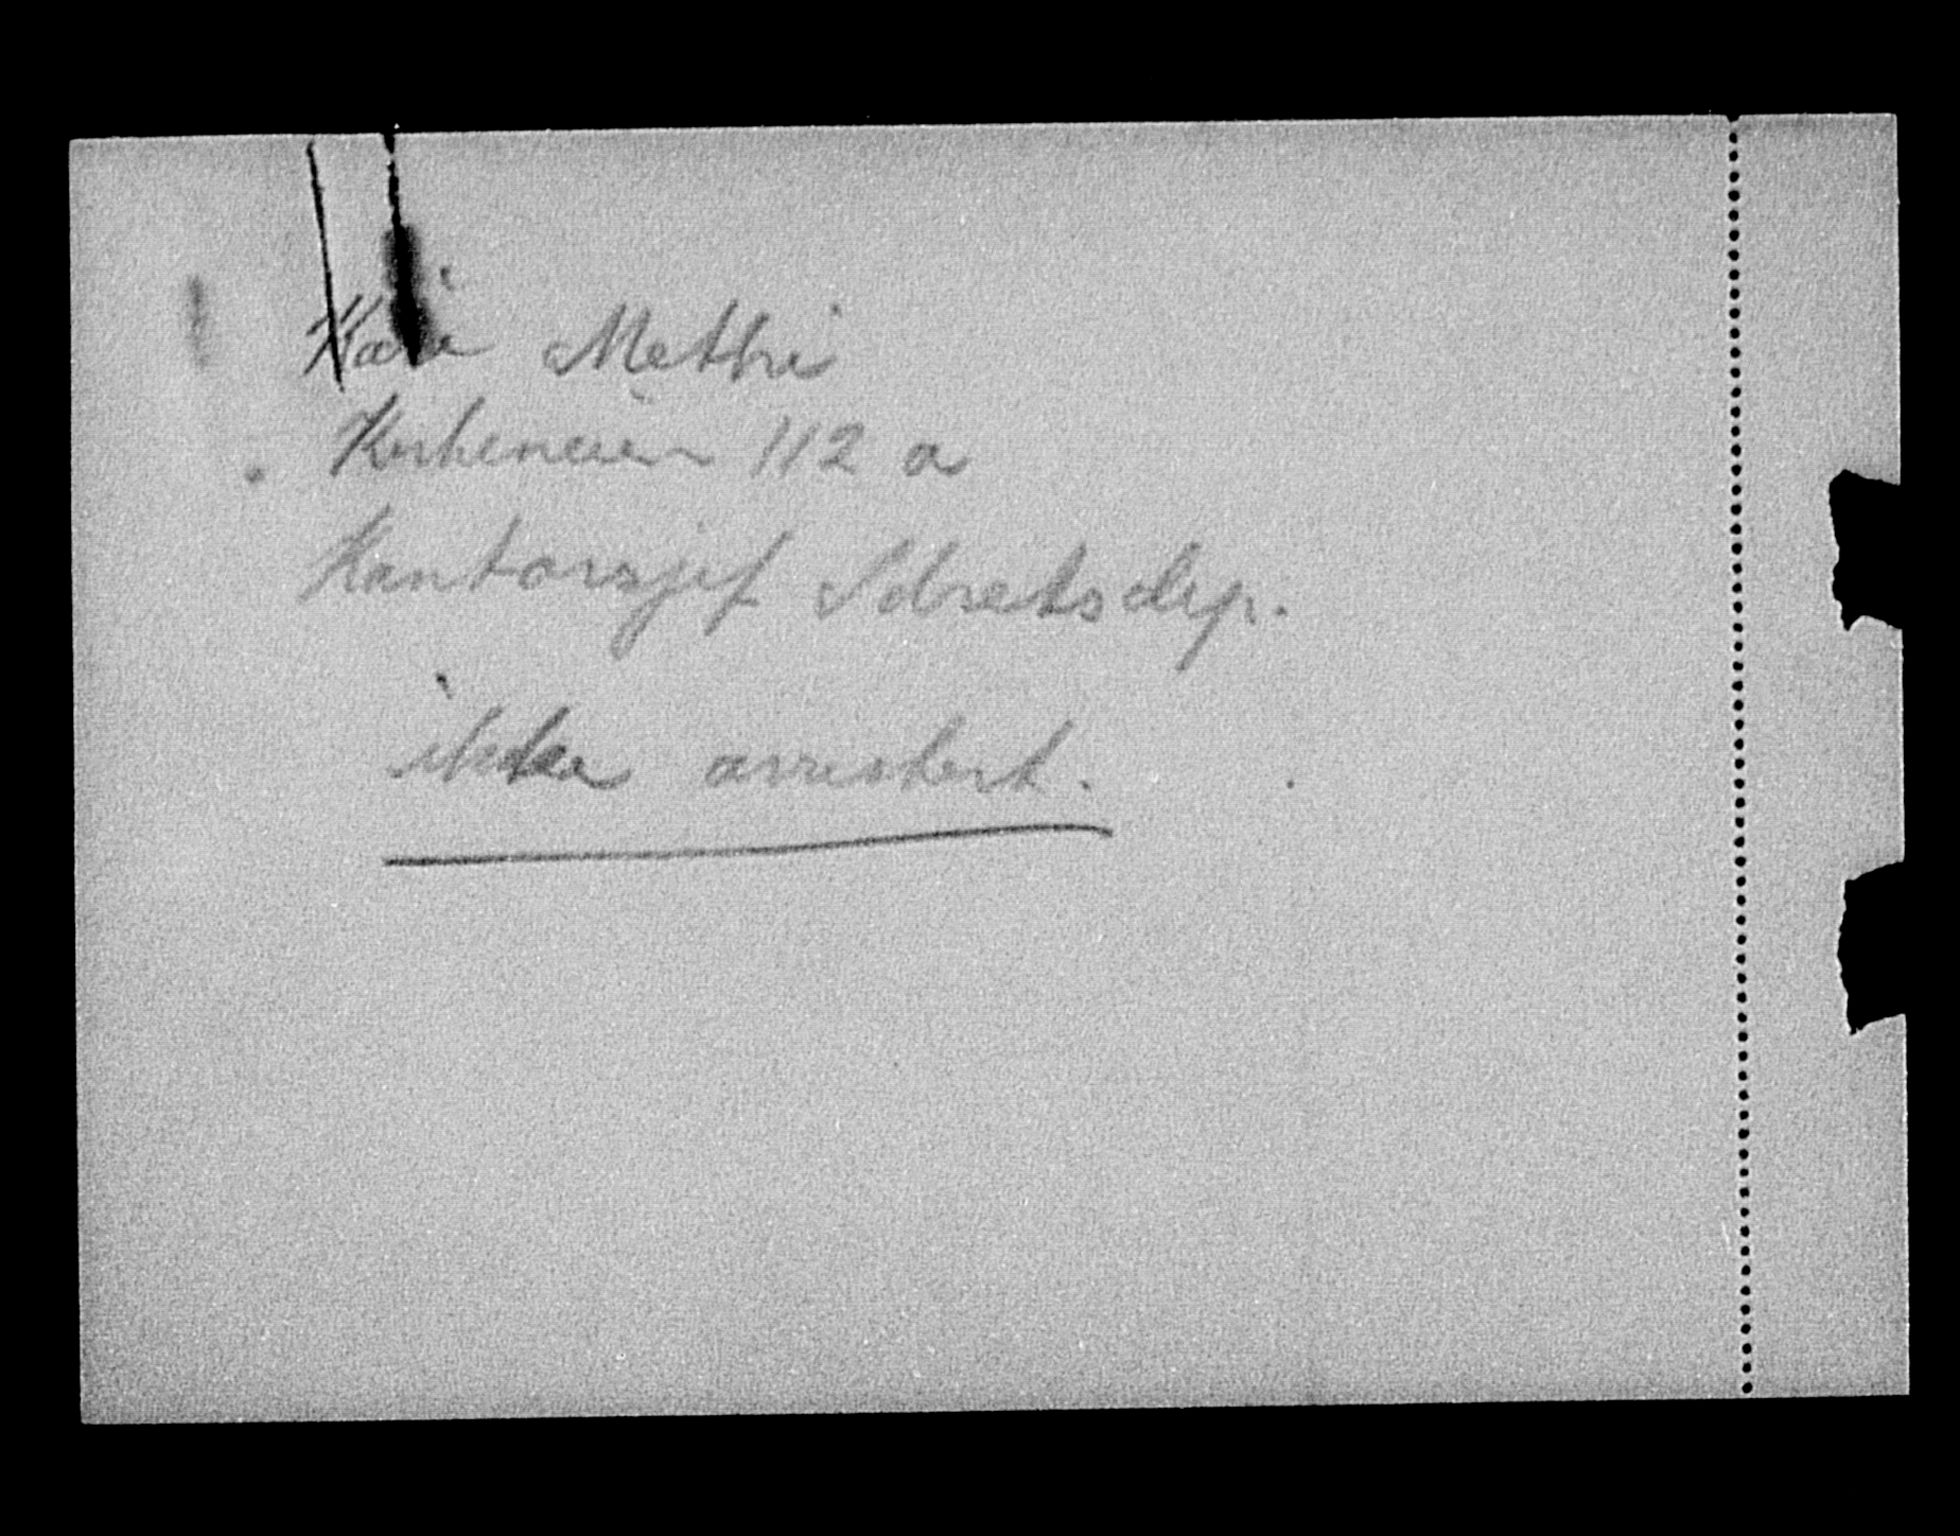 Kari Methri
Kirkeveien 112 a
Kontorsjef Idretsdep.
ikke arrestert.